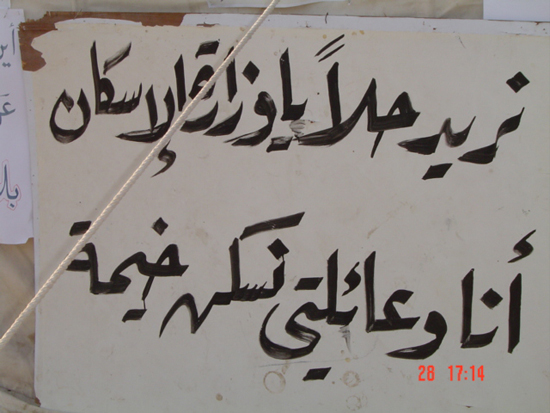 نريد حلاً يا وزارة الإسكان
أنا وعائلتي نسكن خيمة
28 17:14